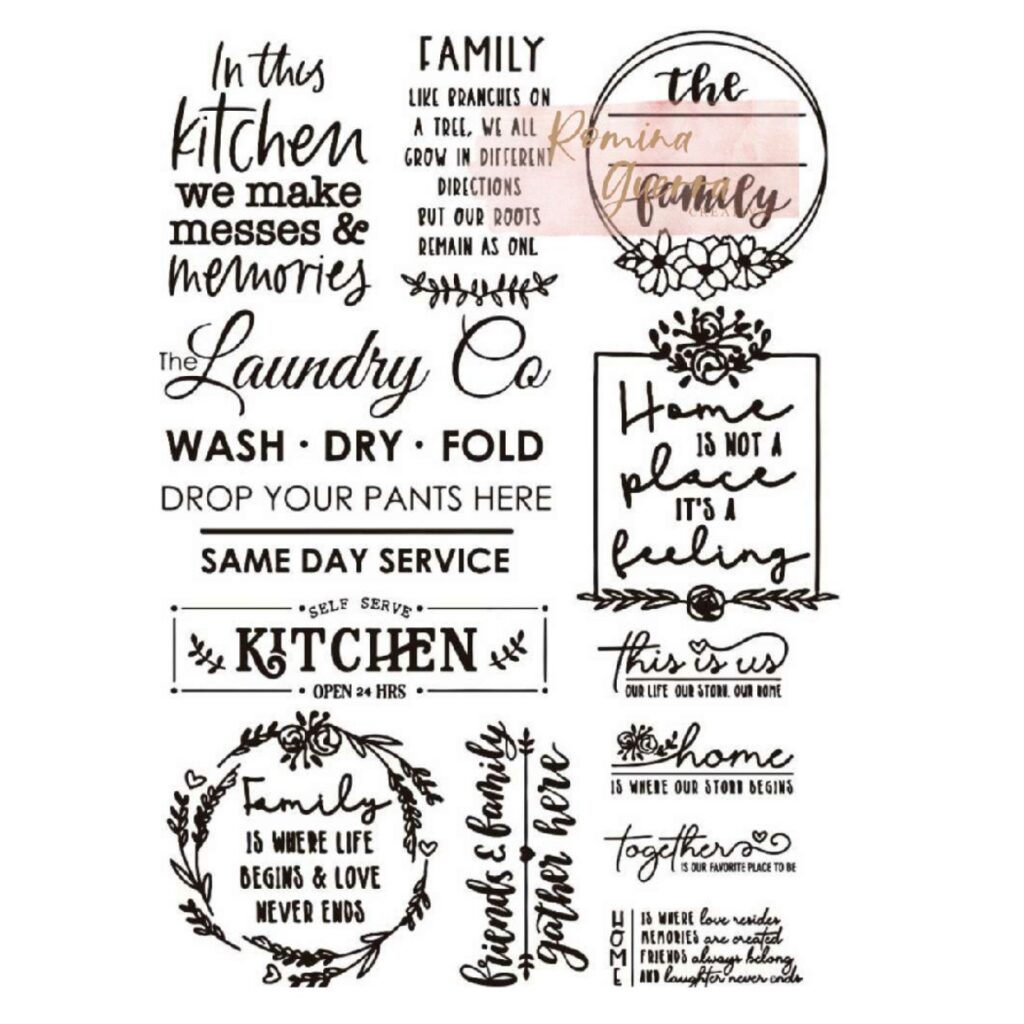 In this
kitchen
we make
messes &
memories
FAMILY
LIKE BRANCHES ON
A TREE, WE ALL
GROW IN DIFFERENT
DIRECTIONS
BUT OUR ROOTS
REMAIN AS ONE
the
family
Romina
Guerra
The Laundry Co
WASH · DRY · FOLD
DROP YOUR PANTS HERE
SAME DAY SERVICE
Home
IS NOT A
place
IT'S A
feeling
• SELF SERVE •
KITCHEN
• OPEN 24 HRS •
this is us
OUR LIFE OUR STORY. OUR HOME
home
IS WHERE OUR STORY BEGINS
together
IS OUR FAVORITE PLACE TO BE
Family
IS WHERE LIFE
BEGINS & LOVE
NEVER ENDS
friends & family
gather here
HOME
IS WHERE love resides
MEMORIES are created
FRIENDS always belong
AND laughter never ends